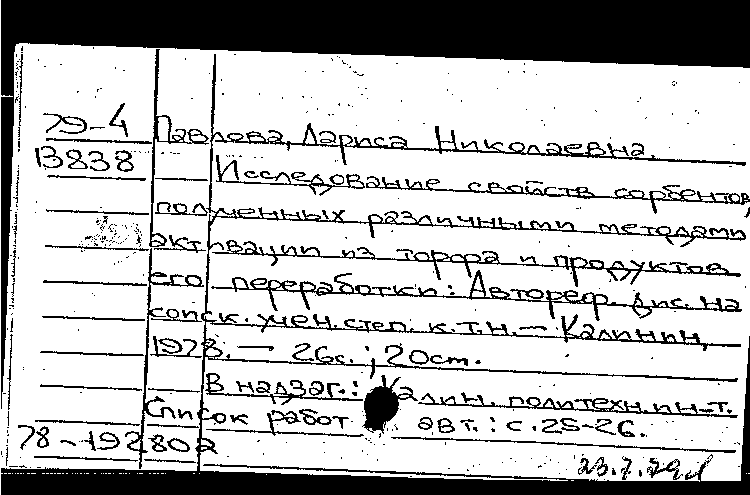 79-4 Павлова, Лариса Николаевна.
13838 Исследование свойств сорбентов,
полученных различными методами
активации из торфа и продуктов
его переработки: Автореф. дис. на
соиск. учен. степ. к.т.н. — Калинин,
1978. — 26с.; 20см.
В надзаг.: Калин. политехн. ин-т.
Список работ авт.: с. 25-26.
78-192802
23.7.79